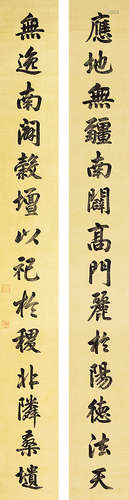 應地無疆南闢高門麗於陽德法天
無逸南閣穀壇以祀於稷北隣桑壝